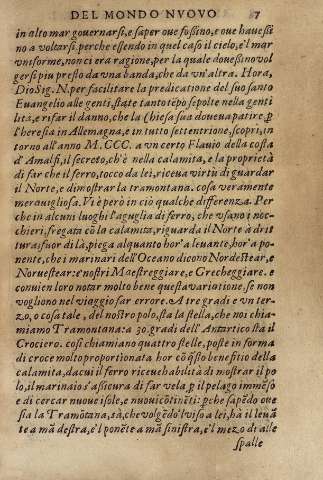 DEL MONDO NVOVO 7
in alto mar gouernarsi, e saper oue fossino, e oue hauessi/
no a voltarsi. perche essendo in quel caso il cielo, e'l mar
vniforme, non ci era ragione, per la quale douessino vol
gersi piu presto da vna banda, che da vn'altra. Hora,
Dio Sig. N. per facilitare la predicatione del suo santo
Euangelio alle genti, state tanto tēpo sepolte nella genti
lità, e rifar il danno, che la Chiesa sua doueua patire p̄
l'heresia in Allemagna, e in tutto settentrione, scoprì, in
torno all'anno M.CCC. a vn certo Flauio della costa
d'Amalfi, il secreto, ch'è nella calamita, e la proprietà
di far che il ferro, tocco da lei, riceua virtù di guardar
il Norte, e dimostrar la tramontana. cosa veramente
merauigliosa. Vi è però in ciò qualche differenza. Per
che in alcuni luoghi l'aguglia di ferro, che vsano i noc-
chieri, fregata cō la calamita, riguarda il Norte à drit
tura: fuor di là, piega alquanto hor'a leuante, hor'a po-
nente, che i marinari dell'Oceano dicono Nordestear, e
Noruestear: e nostri Maestreggiare, e Grecheggiare. e
conuien loro notar molto bene questa variatione, se non
vogliono nel viaggio far errore. A tre gradi e vn ter-
zo, o cosa tale, del nostro polo, sta la stella, che noi chia-
miamo Tramontana: a 30. gradi dell'Antartico stà il
Crociero. così chiamiano quattro stelle, poste in forma
di croce molto proportionata. hor cō q̄sto benefitio della
calamita, da cui il ferro riceue habilità di mostrar il po
lo, il marinaio s'asicura di far vela p̄ il pelago immēso
e di cercar nuoue isole, e nuoui cōtinēti: p̄che sapēdo oue
sia la Tramōtana, sà, che volgēdo'l viso a lei, hà il leuā
te a mā destra, e'l ponēte a mā sinistra, e'l mezo di alle
spalle